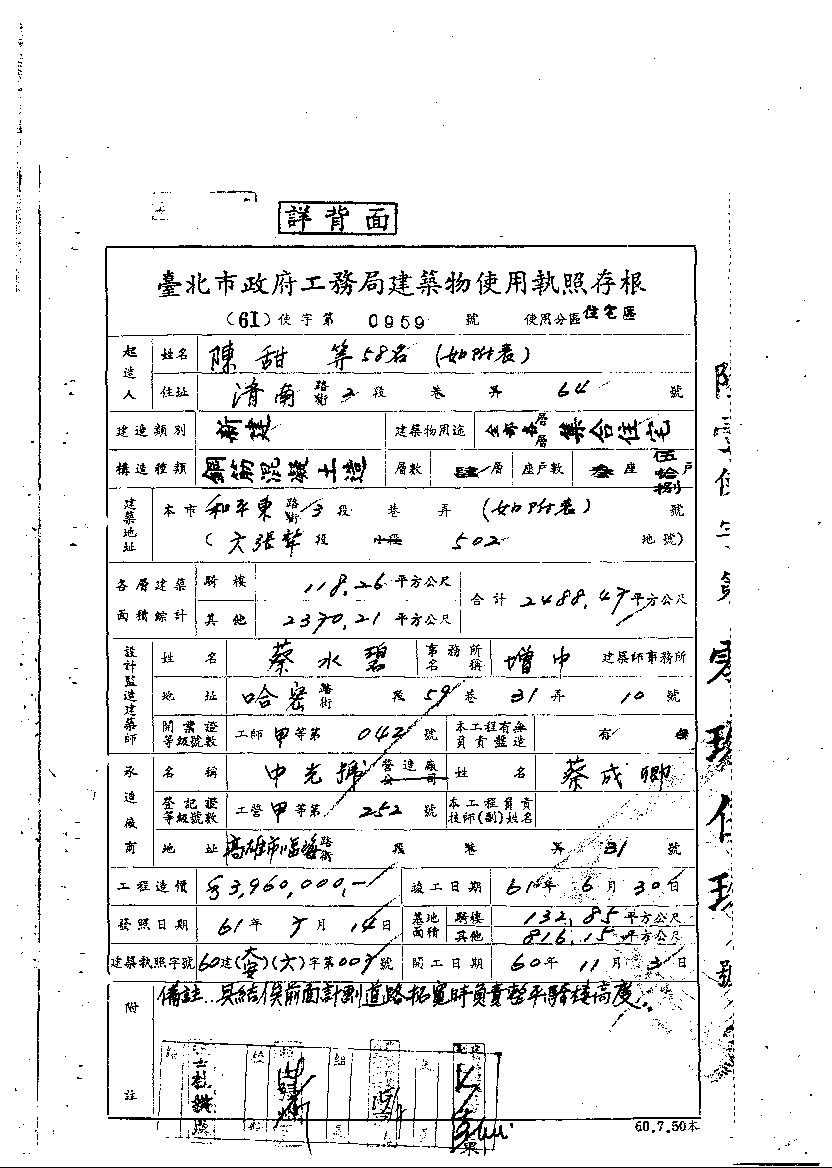 詳背面
臺北市政府工務局建築物使用執照存根
(61)使字第 0959 號 使用分區 住宅區
起造人 姓名 陳甜 等58名(如附表)
住址 濟南 路街 2 段 巷 弄 64 號
建造類別 新建 建築物用途 全部各層 集合住宅
構造種類 鋼筋混凝土造 層數 肆 層 座戶數 座 伍拾捌 戶
建築地址 本市 和平東 路街 3 段 巷 弄 (如附表) 號
(六張犂 段 小段 502 地號)
各層建築面積綜計 騎樓 118.26 平方公尺 合計 2488.47 平方公尺
其他 2370.21 平方公尺
設計監造建築師 姓名 蔡水碧 事務所名稱 增中 建築師事務所
地址 哈密 路街 段 59 巷 31 弄 10 號
開業證等級號數 工師 甲 等第 042 號 本工程有無負責監造 有
承造廠商 名稱 中光 營造廠公司 姓名 蔡成卿
登記證等級號數 工營 甲 等第 252 號 本工程負責技師(副)姓名
地址 高雄市 路街 段 巷 弄 31 號
工程造價 $3,960,000.- 竣工日期 61 年 6 月 30 日
發照日期 61 年 7 月 14 日 基地面積 騎樓 132.85 平方公尺
其他 816.15 平方公尺
建築執照字號 60建(大安)(六)字第 號 開工日期 60 年 11 月 日
附註 備註..具結俟前面計劃道路拓寬時負責整平騎樓高度..
60.7.50本